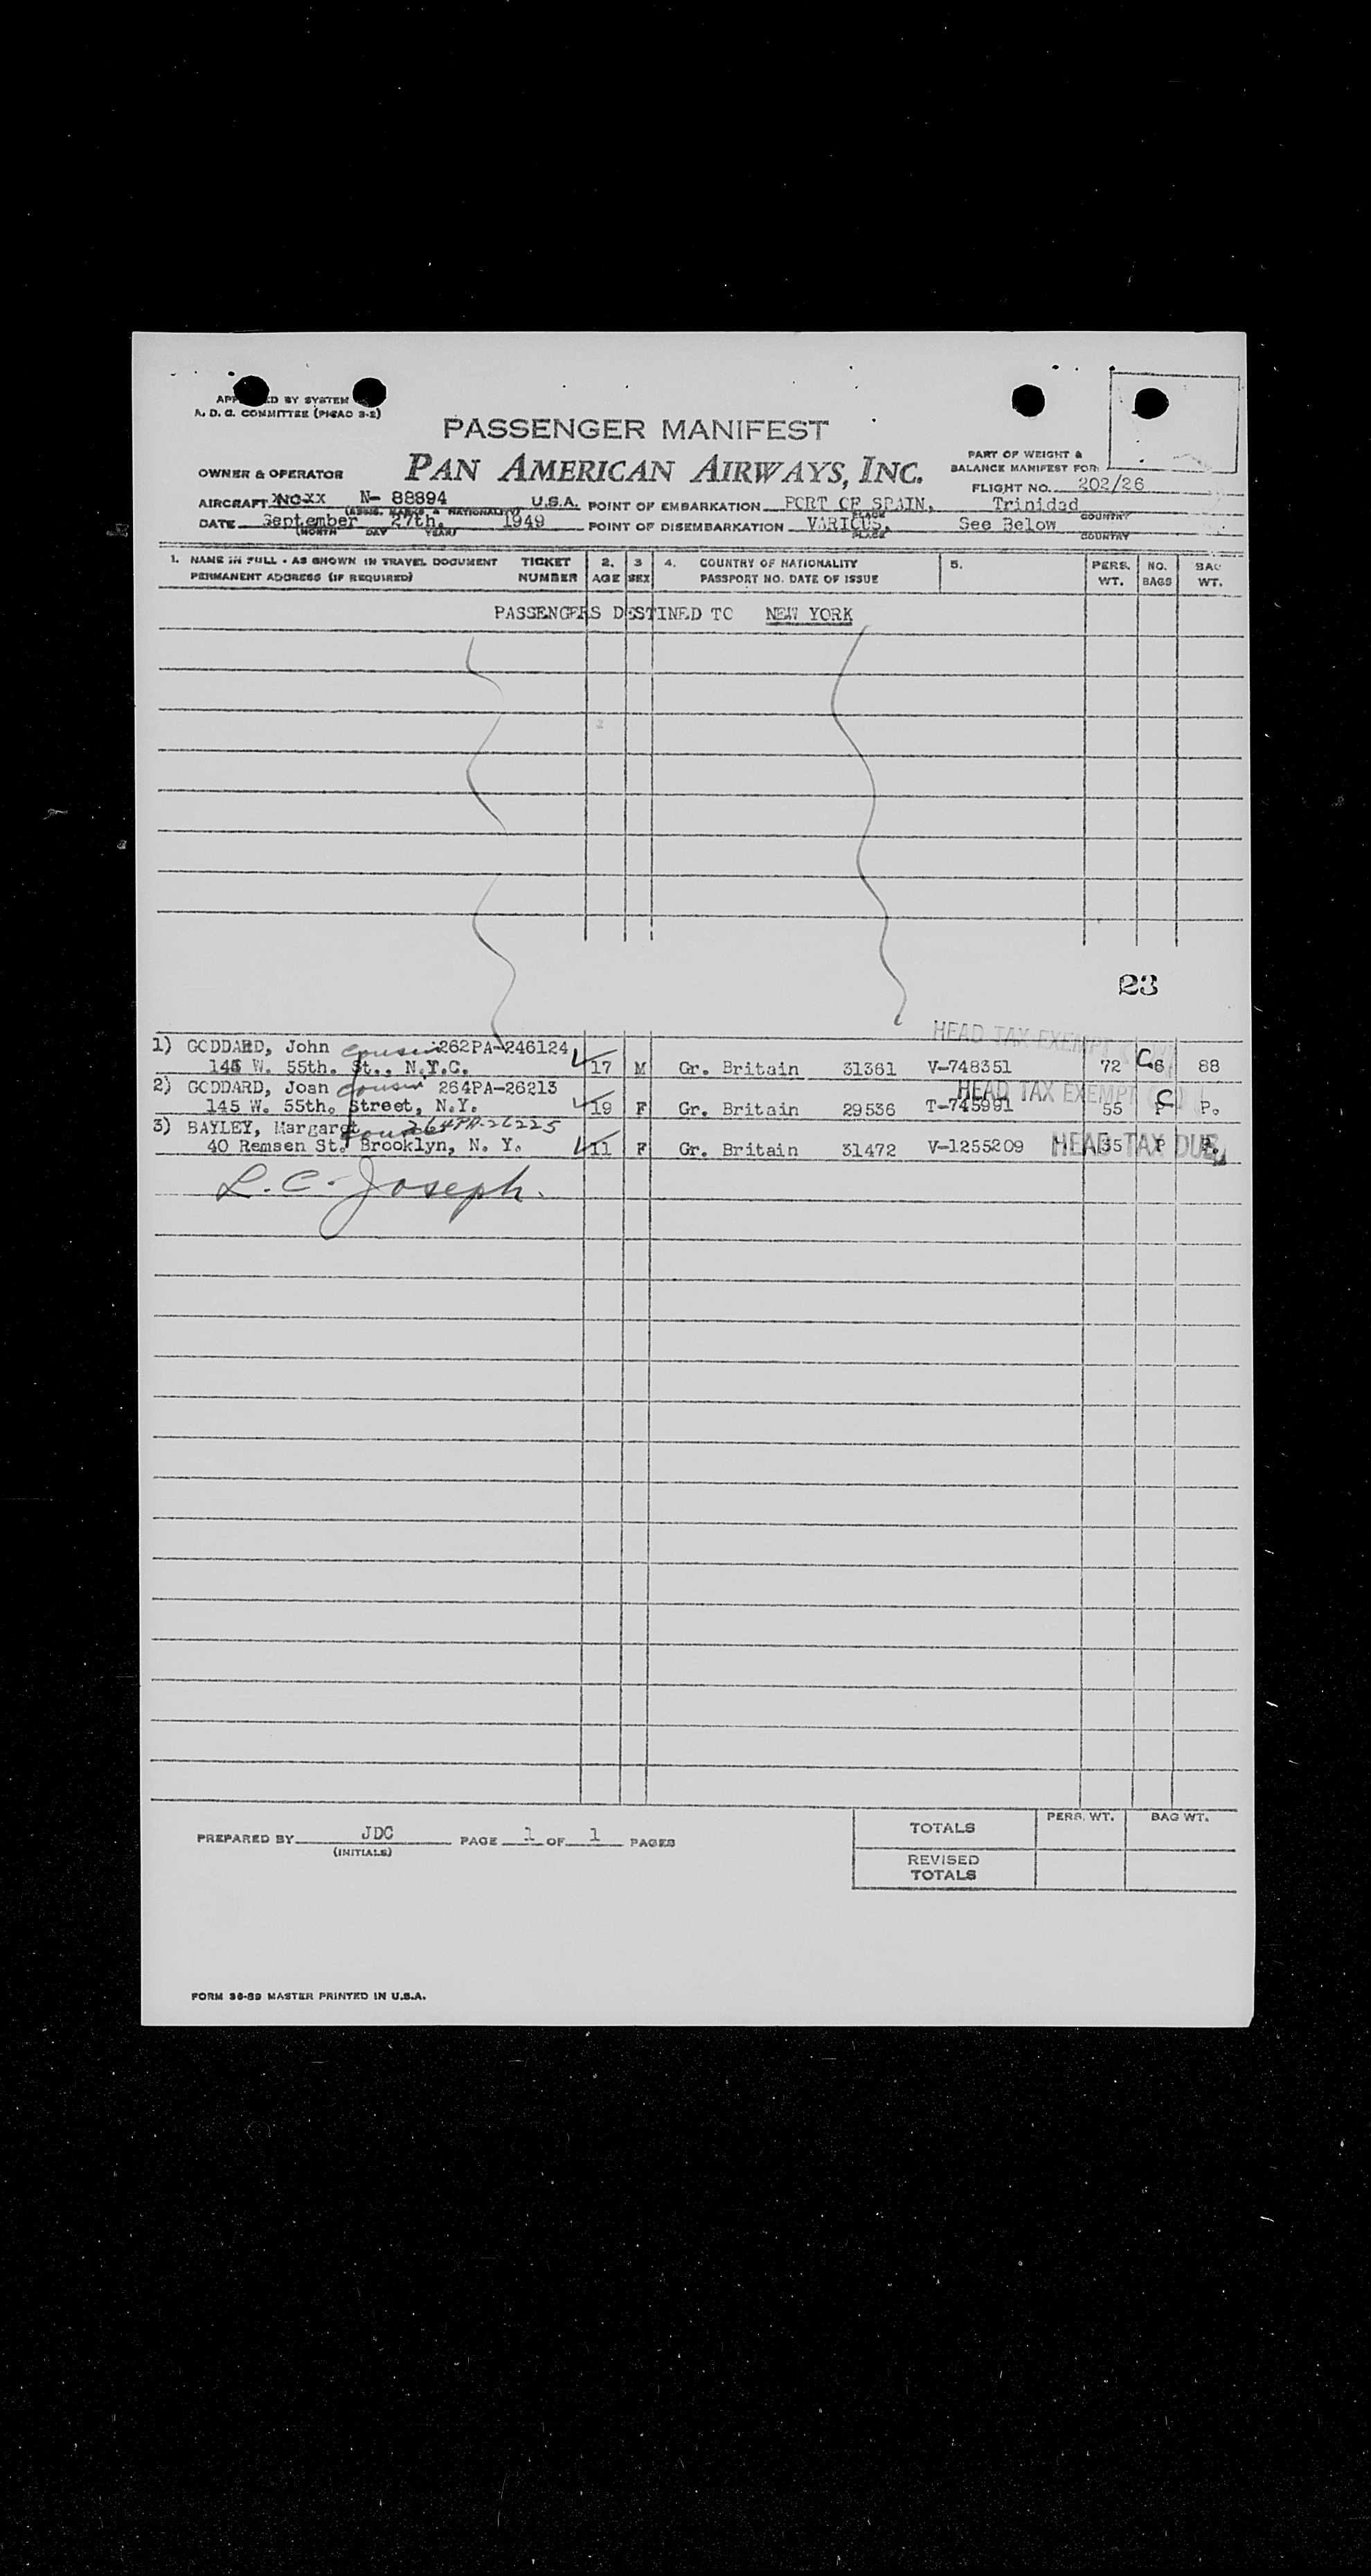 APP ED BY SYSTEM
A. D. C. COMMITTEE (PICAO 3-2)
PASSENGER MANIFEST
OWNER & OPERATOR PAN AMERICAN AIRWAYS, INC.
PART OF WEIGHT &
BALANCE MANIFEST FOR:
FLIGHT NO. 202/26
AIRCRAFT XNCXX N- 88894 U.S.A. POINT OF EMBARKATION PORT OF SPAIN, Trinidad
(REGS. MARKS. & NATIONALITY) PLACE COUNTRY
DATE September 27th. 1949 POINT OF DISEMBARKATION VARIOUS. See Below
(MONTH DAY YEAR) PLACE COUNTRY
1. NAME IN FULL - AS SHOWN IN TRAVEL DOCUMENT TICKET 2. 3 4. COUNTRY OF NATIONALITY 5. PERS. NO. BAG
PERMANENT ADDRESS (IF REQUIRED) NUMBER AGE SEX PASSPORT NO. DATE OF ISSUE WT. BAGS WT.
PASSENGERS DESTINED TO NEW YORK
23
HEAD TAX EXEMPT
1) GODDARD, John cousin 262PA-246124
145 W. 55th. St., N.Y.C. 17 M Gr. Britain 31361 V-748351 72 C 6 88
2) GODDARD, Joan cousin 264PA-26213 HEAD TAX EXEMPT C
145 W. 55th. Street, N.Y. 19 F Gr. Britain 29536 T-745991 55 P P.
3) BAYLEY, Margaret cousin 264PA-26225
40 Remsen St. Brooklyn, N. Y. 11 F Gr. Britain 31472 V-1255209 HEAD TAX DUE 35 P P.
L. C. Joseph.
PREPARED BY JDC PAGE 1 OF 1 PAGES
(INITIALS)
TOTALS PERS. WT. BAG WT.
REVISED
TOTALS
FORM 36-89 MASTER PRINTED IN U.S.A.